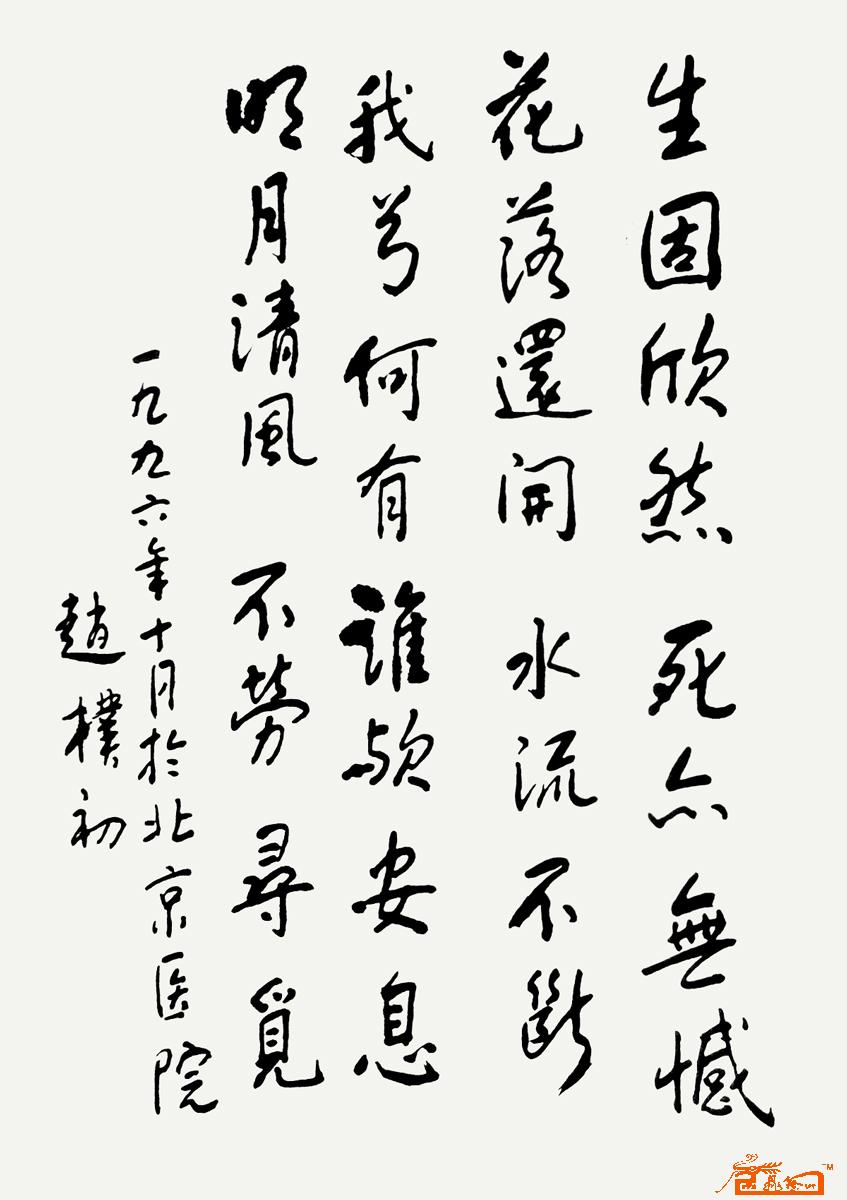 生固欣然 死亦無憾
花落還開 水流不斷
我兮何有 誰歟安息
明月清風 不勞尋覓
一九九六年十月於北京医院
趙樸初